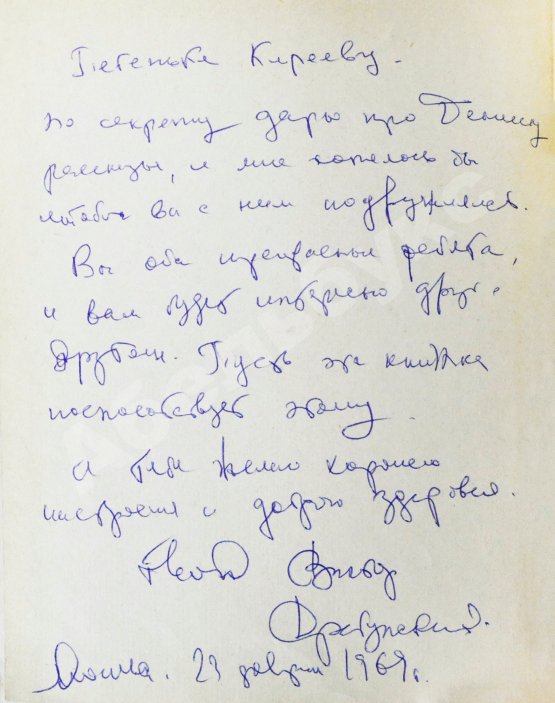 Петеньке Кирееву.
по секрету дарю про Дениску
рассказы, и мне хотелось бы
чтобы вы с ним подружились.
Вы оба прекрасные ребята,
и вам будет интересно друг с
другом. Пусть эта книжка
поспособствует этому.
А тебе желаю хорошего
настроения и доброго здоровья.
Твой Виктор
Драгунский.
Москва. 23 1969 г.